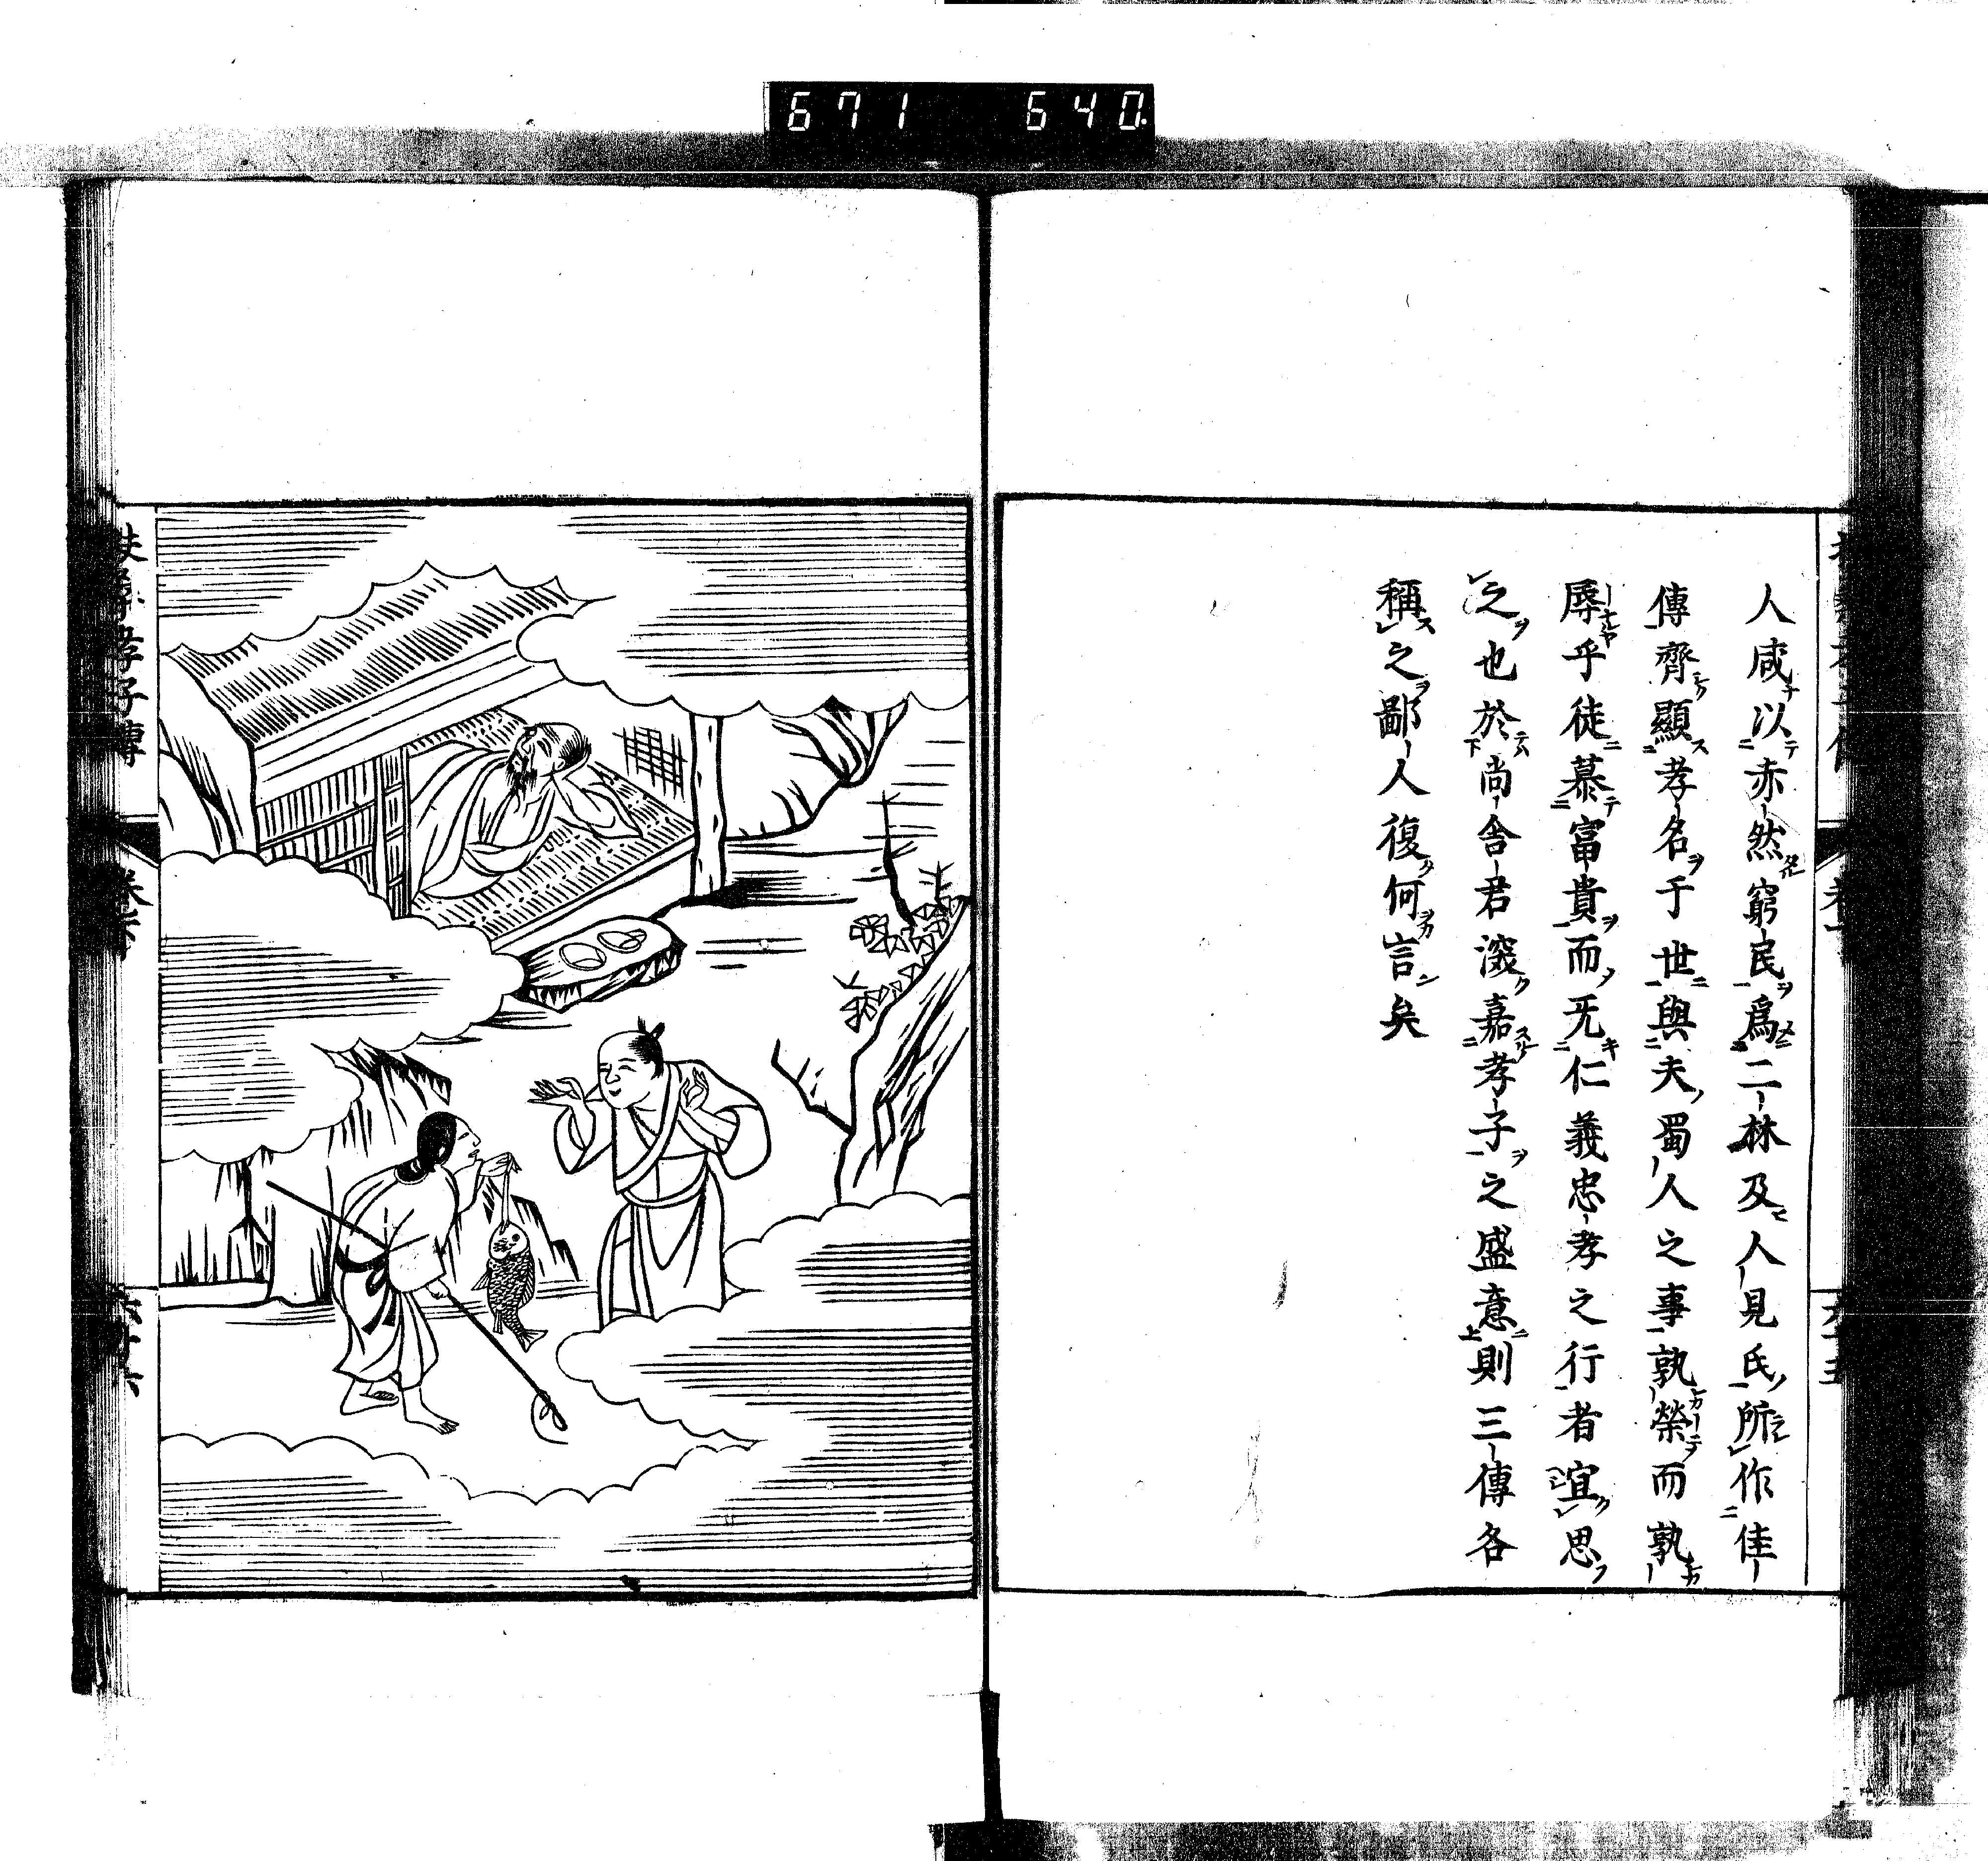 671 640
人咸以赤然窮民爲二林及人見氏所作佳
傳齊顯孝名于世與夫蜀人之事孰榮而孰
辱乎徒慕富貴而无仁義忠孝之行者宜思
之也於尚舎君深嘉孝子之盛意則三傳各
稱之鄙人復何言矣
孝子傳